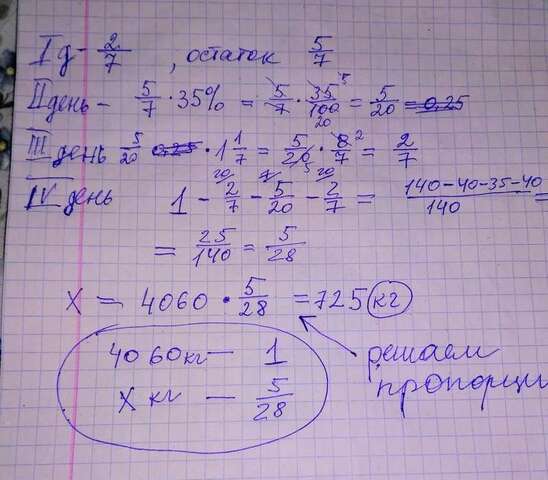 I д - 2/7, остаток 5/7
II день - 5/7 · 35% = 5/7 · 35/100 = 5/20 = 0,25
III день 5/20 0,25 · 1 1/7 = 5/20 · 8/7 = 2/7
IV день 1 - 2/7 - 5/20 - 2/7 = 140-40-35-40/140 =
= 25/140 = 5/28
X = 4060 · 5/28 = 725 кг
4060кг — 1
X кг — 5/28
решаем
пропорци